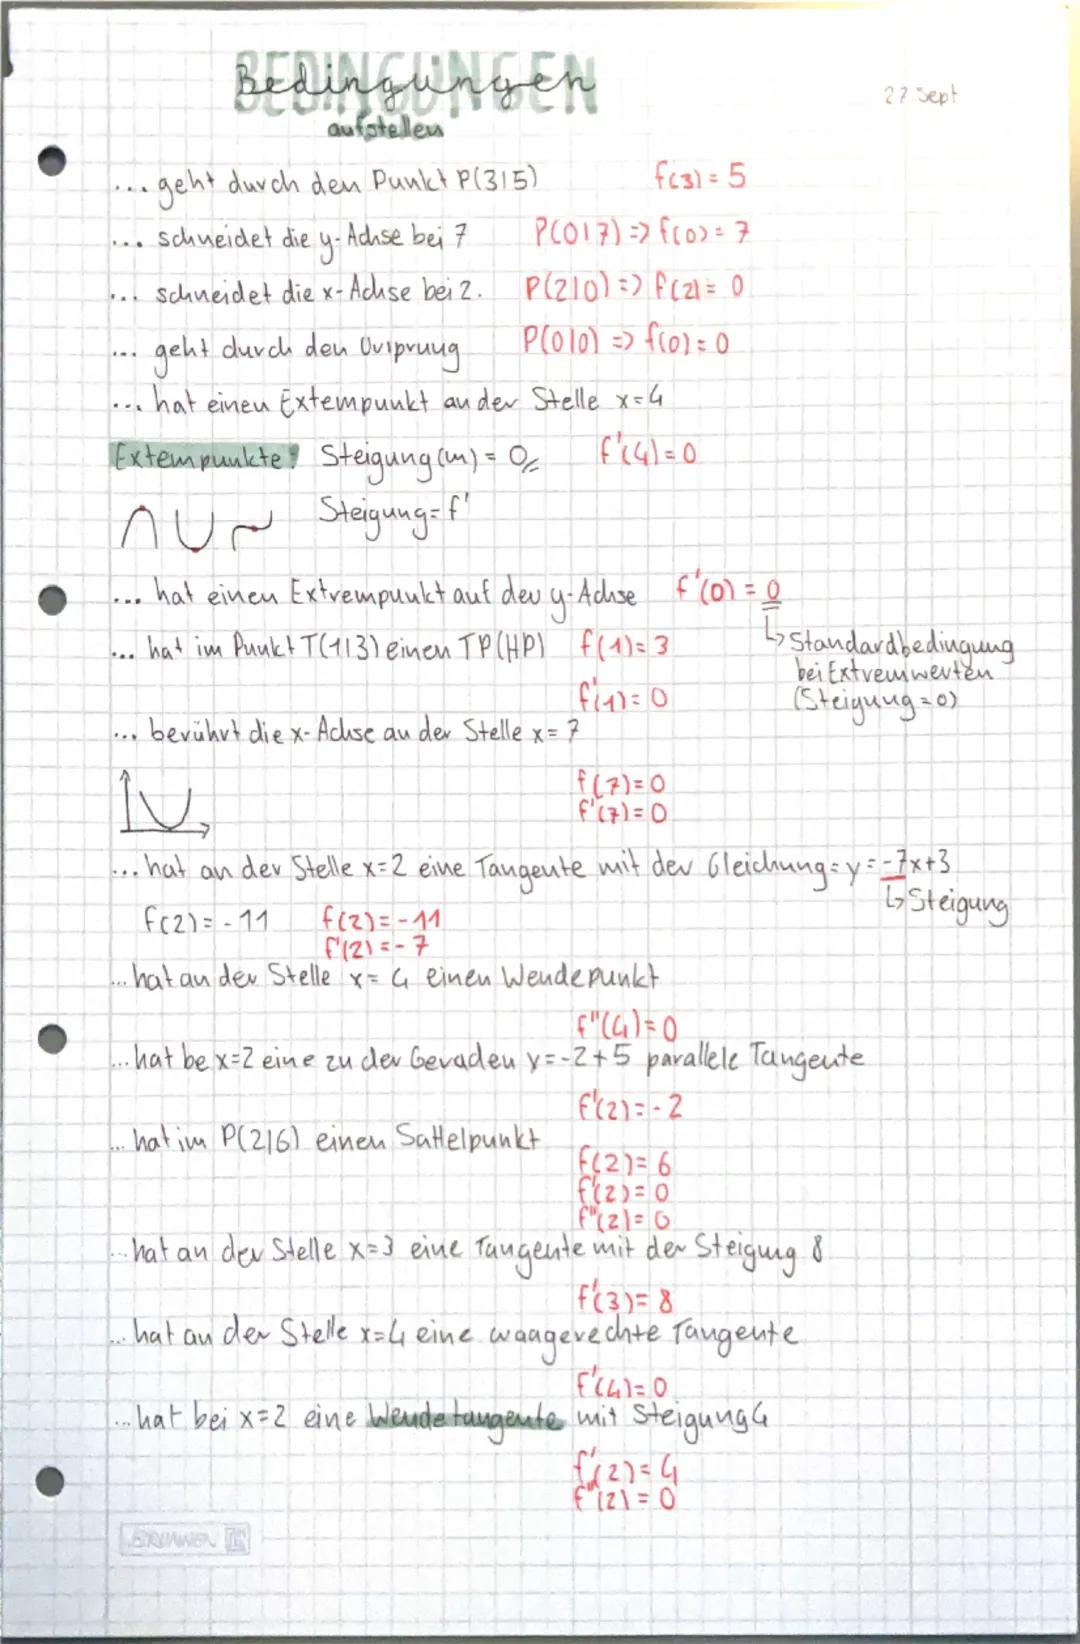 BEDINGUNGEN
Bedingungen
aufstellen
27. Sept
... geht durch den Punkt P(3|5) f(3) = 5
... schneidet die y-Achse bei 7 P(0|7) => f(0) = 7
... schneidet die x-Achse bei 2. P(2|0) => f(2) = 0
... geht durch den Urspruug P(0|0) => f(0) = 0
... hat einen Extempunkt an der Stelle x=4
Extempunkte: Steigung (m) = 0 f'(4) = 0
Steigung = f'
... hat einen Extrempunkt auf der y-Achse f'(0) = 0
... hat im Punkt T(1|3) einen TP (HP) f(1) = 3
↳ Standardbedingung
bei Extremwerten
(Steigung = 0)
f'(1) = 0
... berührt die x-Achse an der Stelle x = 7
f(7) = 0
f'(7) = 0
... hat an der Stelle x=2 eine Tangente mit der Gleichung: y = -7x+3
↳ Steigung
f(2) = -11 f(2) = -11
f'(2) = -7
... hat an der Stelle x = 4 einen Wendepunkt
f''(4) = 0
... hat be x=2 eine zu der Geraden y=-2+5 parallele Tangente
f'(2) = -2
... hat im P(2|6) einen Sattelpunkt
f(2) = 6
f'(2) = 0
f''(2) = 0
... hat an der Stelle x=3 eine Tangente mit der Steigung 8
f'(3) = 8
... hat an der Stelle x=4 eine waagerechte Tangente
f'(4) = 0
... hat bei x=2 eine Wendetangente mit Steigung 4
f'(2) = 4
f''(2) = 0
BRUNNEN